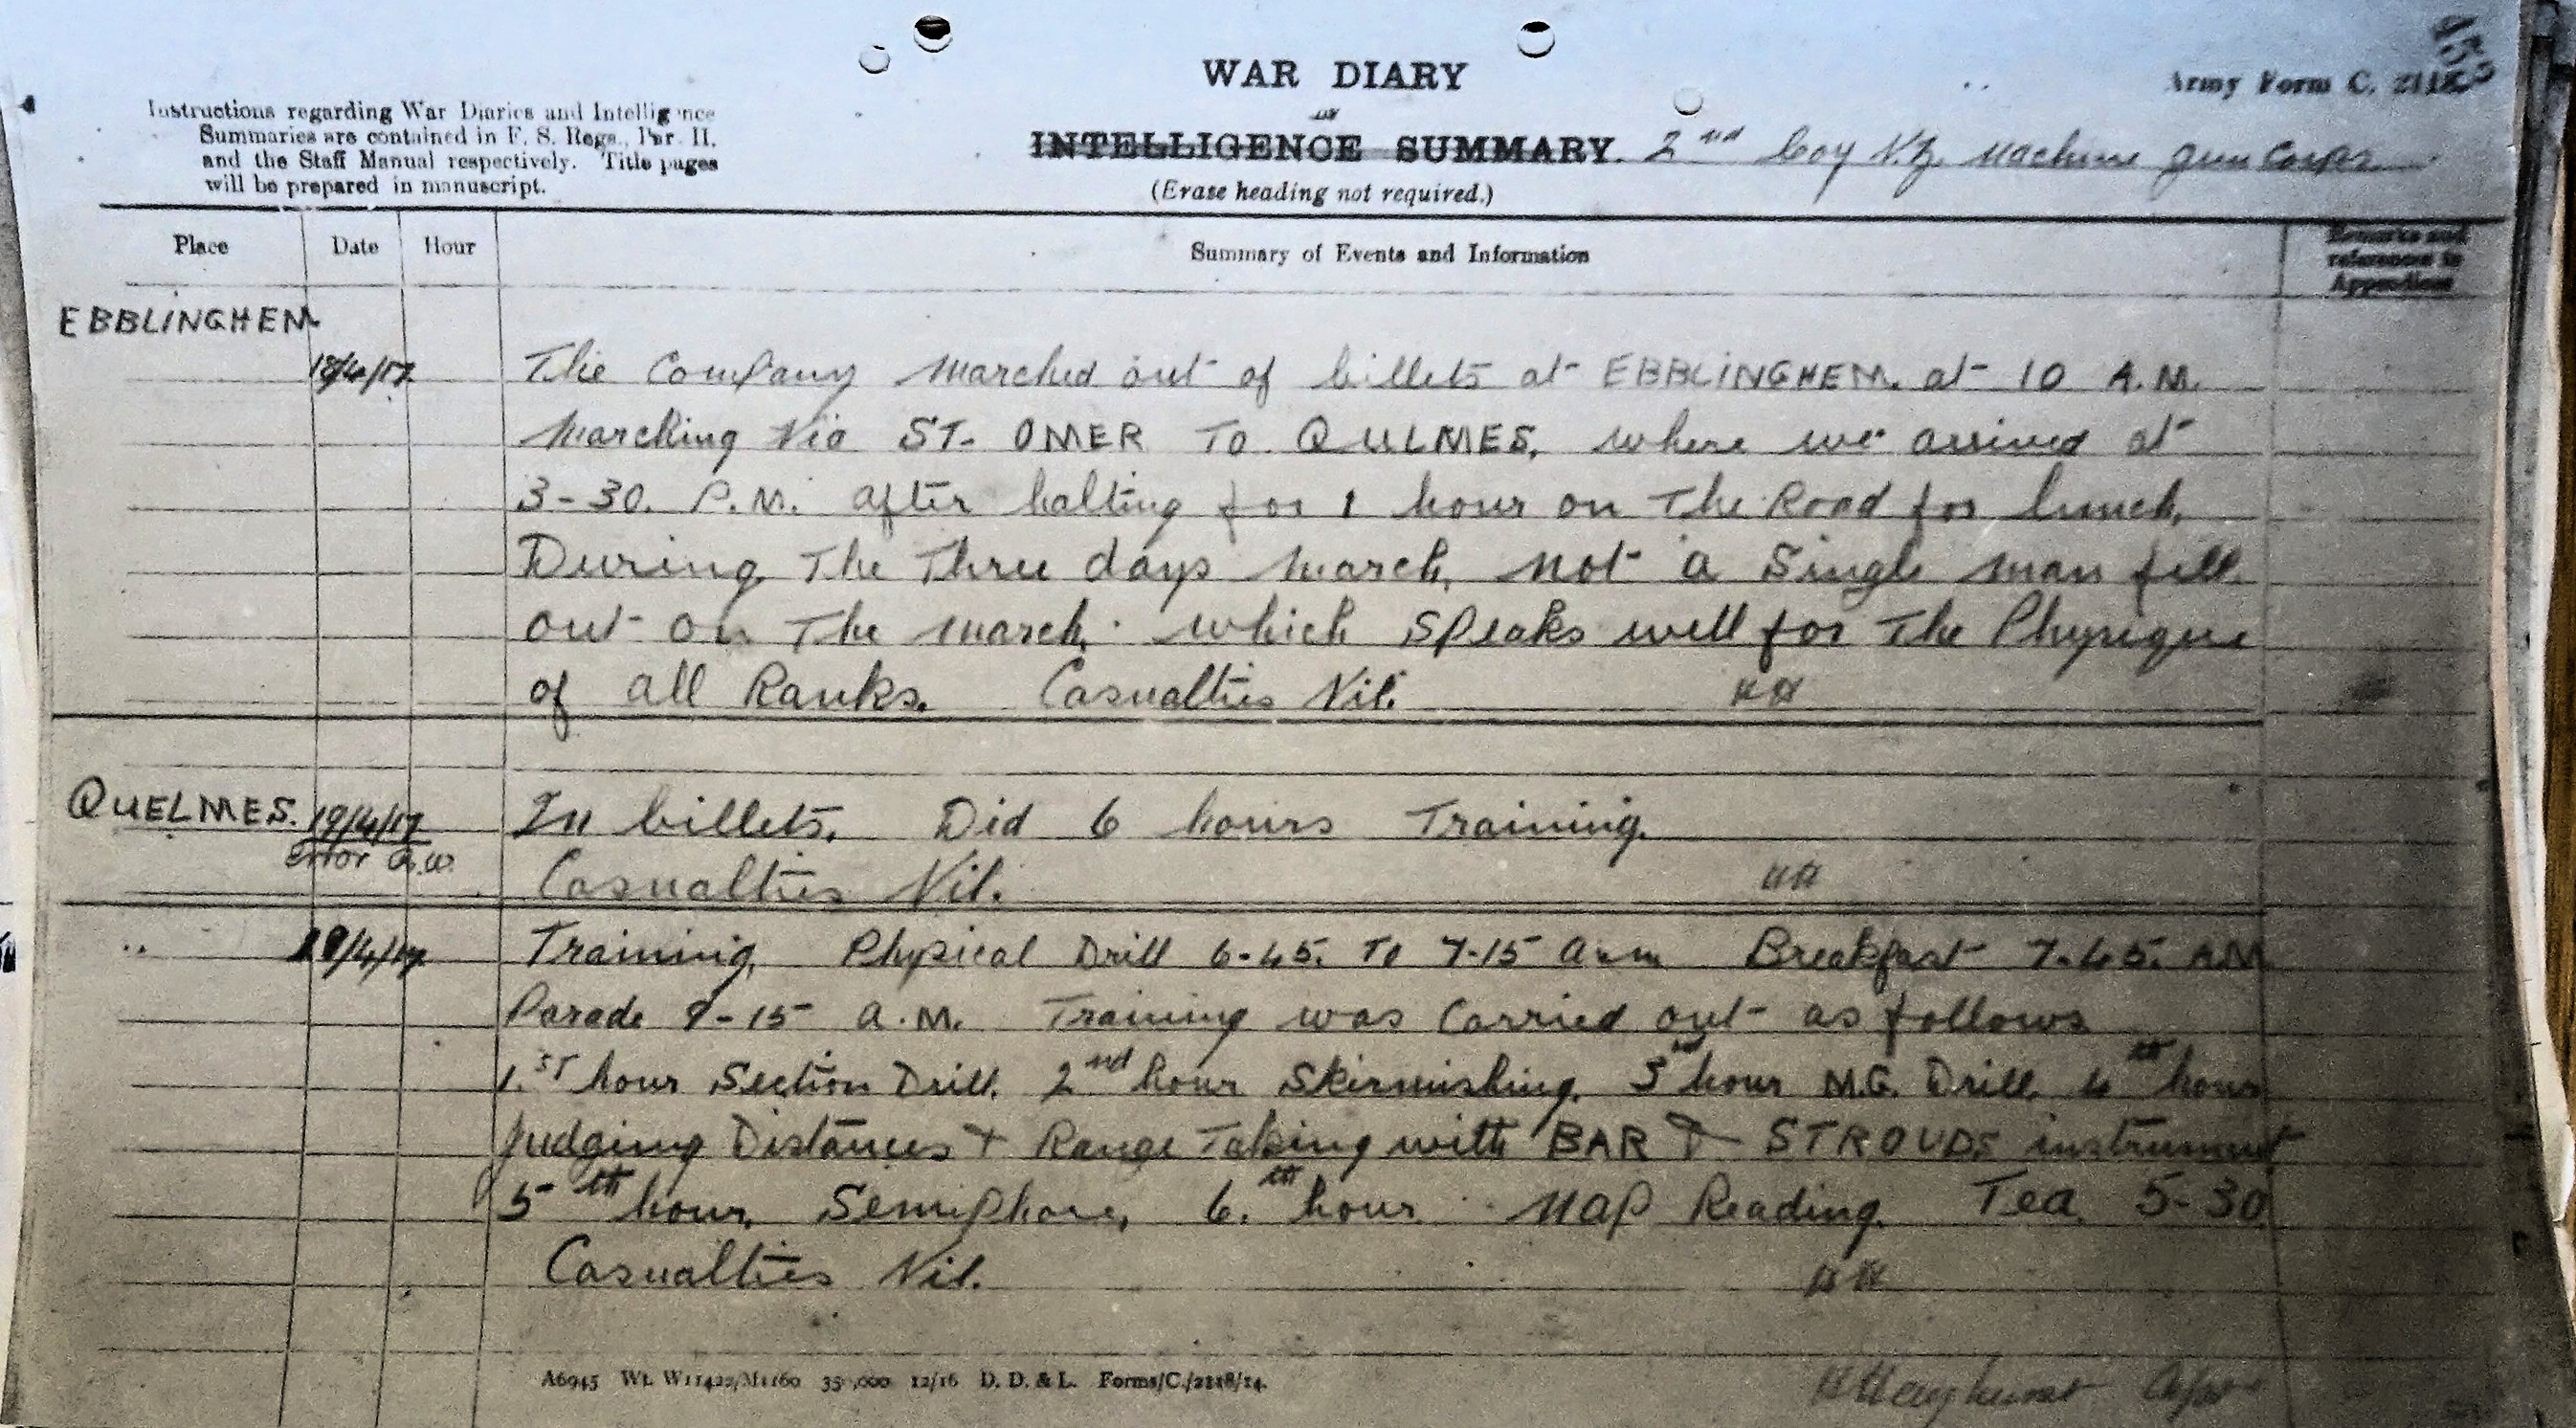 WAR DIARY
Army Form C. 2118
Instructions regarding War Diaries and Intelligence
Summaries are contained in F. S. Regs., Par II.
and the Staff Manual respectively. Title pages
will be prepared in manuscript.
or
INTELLIGENCE SUMMARY. 2nd Coy N.Z. Machine Gun Corps.
(Erase heading not required.)
Place Date Hour Summary of Events and Information Remarks and references to Appendices
EBBLINGHEM
18/4/17. The Company Marched out of billets at EBBLINGHEM. at 10 A.M.
Marching Via ST. OMER TO QULMES, where we arrived at
3-30. P.M. after halting for 1 hour on The Road for lunch.
During The Three days march, not a Single man fell
out on The march. which Speaks well for The Physique
of all Ranks. Casualties Nil.
QUELMES. 19/4/17 In billets. Did 6 hours Training.
error A.W.
Casualties Nil.
" 19/4/17 Training. Physical Drill 6-45. To 7-15 a.m Breakfast 7-45. A.M
Parade 8-15 a.m. Training was Carried out as follows
1.ST hour Section Drill. 2nd hour Skirmishing. 3rd hour M.G. Drill. 4th hour
Judging Distances + Range Taking with BAR & STROUDS instrument
5th hour. Semiphore, 6.th hour Map Reading. Tea. 5-30
Casualties Nil.
A6945 Wt. W11422/M1160 35,000 12/16 D. D. & L. Forms/C./2118/14.